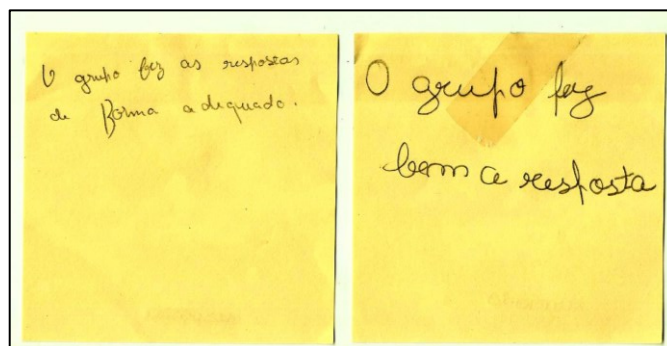 O grupo fez as respostas
de forma adequado.
O grupo fez
bem a resposta